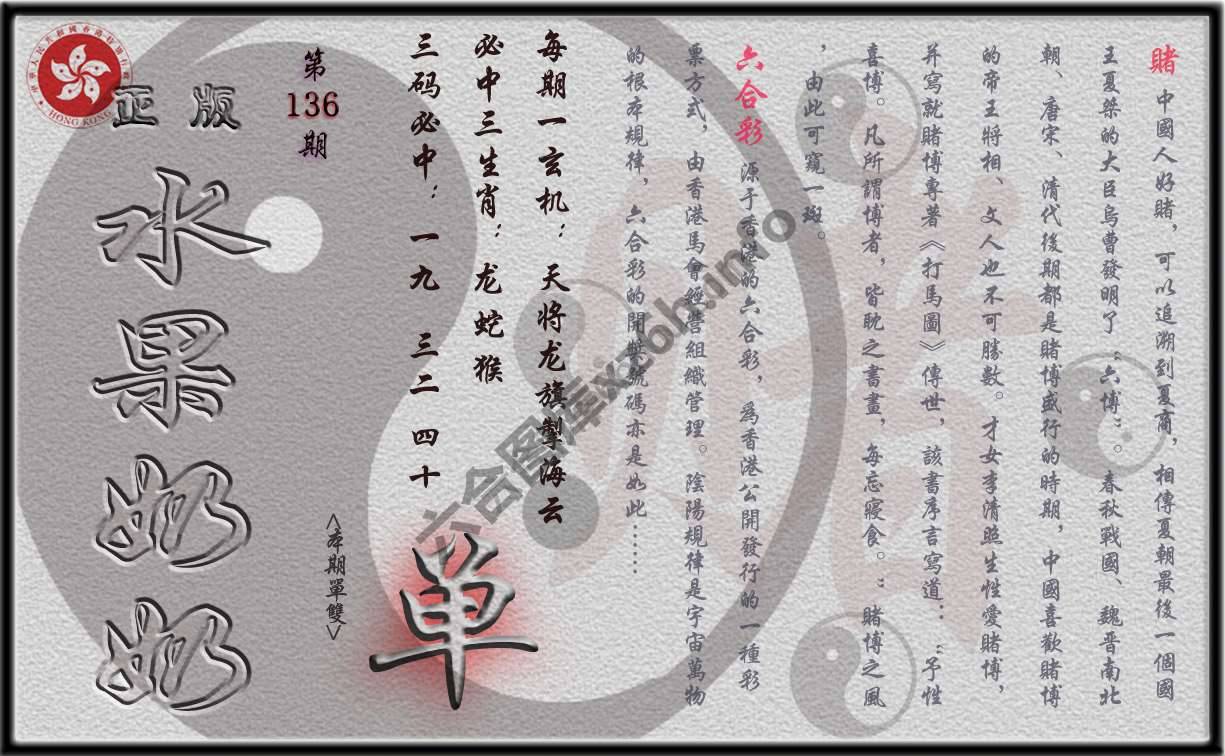 賭 中國人好賭，可以追溯到夏商，相傳夏朝最後一個國
王夏桀的大臣烏曹發明了“六博”。春秋戰國、魏晋南北
朝、唐宋、清代後期都是賭博盛行的時期，中國喜歡賭博
的帝王將相、文人也不可勝數。才女李清照生性愛賭博，
并寫就賭博專著《打馬圖》傳世，該書序言寫道：“予性
喜博。凡所謂博者，皆耽之書畫，每忘寢食。”賭博之風
，由此可窺一斑。
六合彩 源于香港的六合彩，為香港公開發行的一種彩
票方式，由香港馬會經營組織管理。陰陽規律是宇宙萬物
的根本規律，六合彩的開獎號碼亦是如此……
每期一玄机：天将龙旗掣海云
必中三生肖：龙蛇猴
三码必中：一九 三二 四十
单
<本期單雙>
第
136
期
正版
水果奶奶
六合图库xz6h.info
HONG KONG